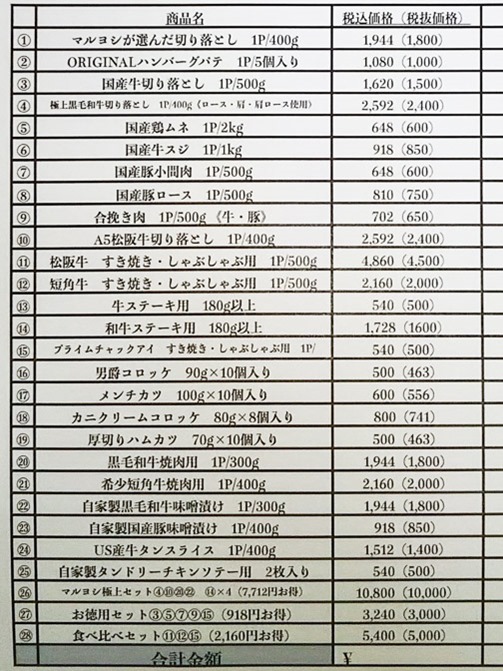 商品名 税込価格（税抜価格）
① マルヨシが選んだ切り落とし 1P/400g 1,944（1,800）
② ORIGINALハンバーグパテ 1P/5個入り 1,080（1,000）
③ 国産牛切り落とし 1P/500g 1,620（1,500）
④ 極上黒毛和牛切り落とし 1P/400g（ロース・肩・肩ロース使用） 2,592（2,400）
⑤ 国産鶏ムネ 1P/2kg 648（600）
⑥ 国産牛スジ 1P/1kg 918（850）
⑦ 国産豚小間肉 1P/500g 648（600）
⑧ 国産豚ロース 1P/500g 810（750）
⑨ 合挽き肉 1P/500g《牛・豚》 702（650）
⑩ A5松阪牛切り落とし 1P/400g 2,592（2,400）
⑪ 松阪牛 すき焼き・しゃぶしゃぶ用 1P/500g 4,860（4,500）
⑫ 短角牛 すき焼き・しゃぶしゃぶ用 1P/500g 2,160（2,000）
⑬ 牛ステーキ用 180g以上 540（500）
⑭ 和牛ステーキ用 180g以上 1,728（1600）
⑮ プライムチャックアイ すき焼き・しゃぶしゃぶ用 1P/ 540（500）
⑯ 男爵コロッケ 90g×10個入り 500（463）
⑰ メンチカツ 100g×10個入り 600（556）
⑱ カニクリームコロッケ 80g×8個入り 800（741）
⑲ 厚切りハムカツ 70g×10個入り 500（463）
⑳ 黒毛和牛焼肉用 1P/300g 1,944（1,800）
㉑ 希少短角牛焼肉用 1P/400g 2,160（2,000）
㉒ 自家製黒毛和牛味噌漬け 1P/300g 1,944（1,800）
㉓ 自家製国産豚味噌漬け 1P/400g 918（850）
㉔ US産牛タンスライス 1P/400g 1,512（1,400）
㉕ 自家製タンドリーチキンソテー用 2枚入り 540（500）
㉖ マルヨシ極上セット④⑩⑳㉒ ⑭×4（7,712円お得） 10,800（10,000）
㉗ お徳用セット③⑤⑦⑨⑮（918円お得） 3,240（3,000）
㉘ 食べ比べセット⑪⑫⑮（2,160円お得） 5,400（5,000）
合計金額 ¥